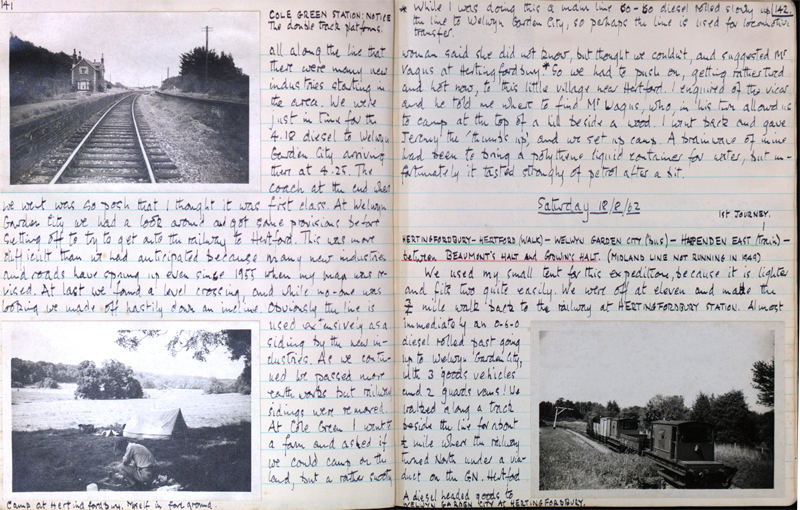 141
COLE GREEN STATION: NOTICE
The double track platforms.
all along the line that
there were many new
industries starting in
the area. We were
just in time for the
4.18 diesel to Welwyn
Garden City arriving
there at 4.25. The
coach at the end where
we went was so posh that I thought it was first class. At Welwyn
Garden City we had a look around and got some provisions before
setting off to try to get onto the railway to Hertford. This was more
difficult than we had anticipated because many new industries
and roads have sprung up even since 1955 when my map was re-
vised. At last we found a level crossing, and while no-one was
looking we made off hastily down an incline. Obviously the line is
used extensively as a
siding by the new in-
dustries. As we contin-
ued we passed more
earth works but railway
sidings were removed.
At Cole Green I went to
a farm and asked if
we could camp on the
land, but a rather snooty
Camp at Hertingfordbury. Myself in foreground.
* While I was doing this a main line Bo-Bo diesel rolled slowly up
142.
the line to Welwyn Garden City, so perhaps the line is used for locomotive
transfer.
woman said she did not know, but thought we couldn't, and suggested Mr
Vagus at Hertingfordbury.* So we had to push on, getting rather tired
and hot now, to this little village near Hertford. I enquired of the vicar
and he told me where to find Mr Wagus, who, in his turn allowed us
to camp at the top of a hill beside a wood. I went back and gave
Jeremy the 'thumbs up', and we set up camp. A brainwave of mine
had been to bring a polythene liquid container for water, but un-
fortunately it tasted strongly of petrol after a bit.
Saturday 18/8/62
1ST JOURNEY.
HERTINGFORDBURY - HERTFORD (WALK) - WELWYN GARDEN CITY (bus) - HARPENDEN EAST (train) -
between BEAUMONT'S HALT and GODWIN'S HALT. (MIDLAND LINE NOT RUNNING IN 1949)
We used my small tent for this expedition, because it is lighter
and fits two quite easily. We were off at eleven and made the
½ mile walk back to the railway at HERTINGFORDBURY STATION. Almost
immediately an 0-6-0
diesel rolled past going
up to Welwyn Garden City,
with 3 goods vehicles
and 2 guards vans! We
walked along a track
beside the line for about
½ mile where the railway
turned North under a via-
duct on the GN. Hertford
A diesel headed goods to
WELWYN GARDEN CITY AT HERTINGFORDBURY.